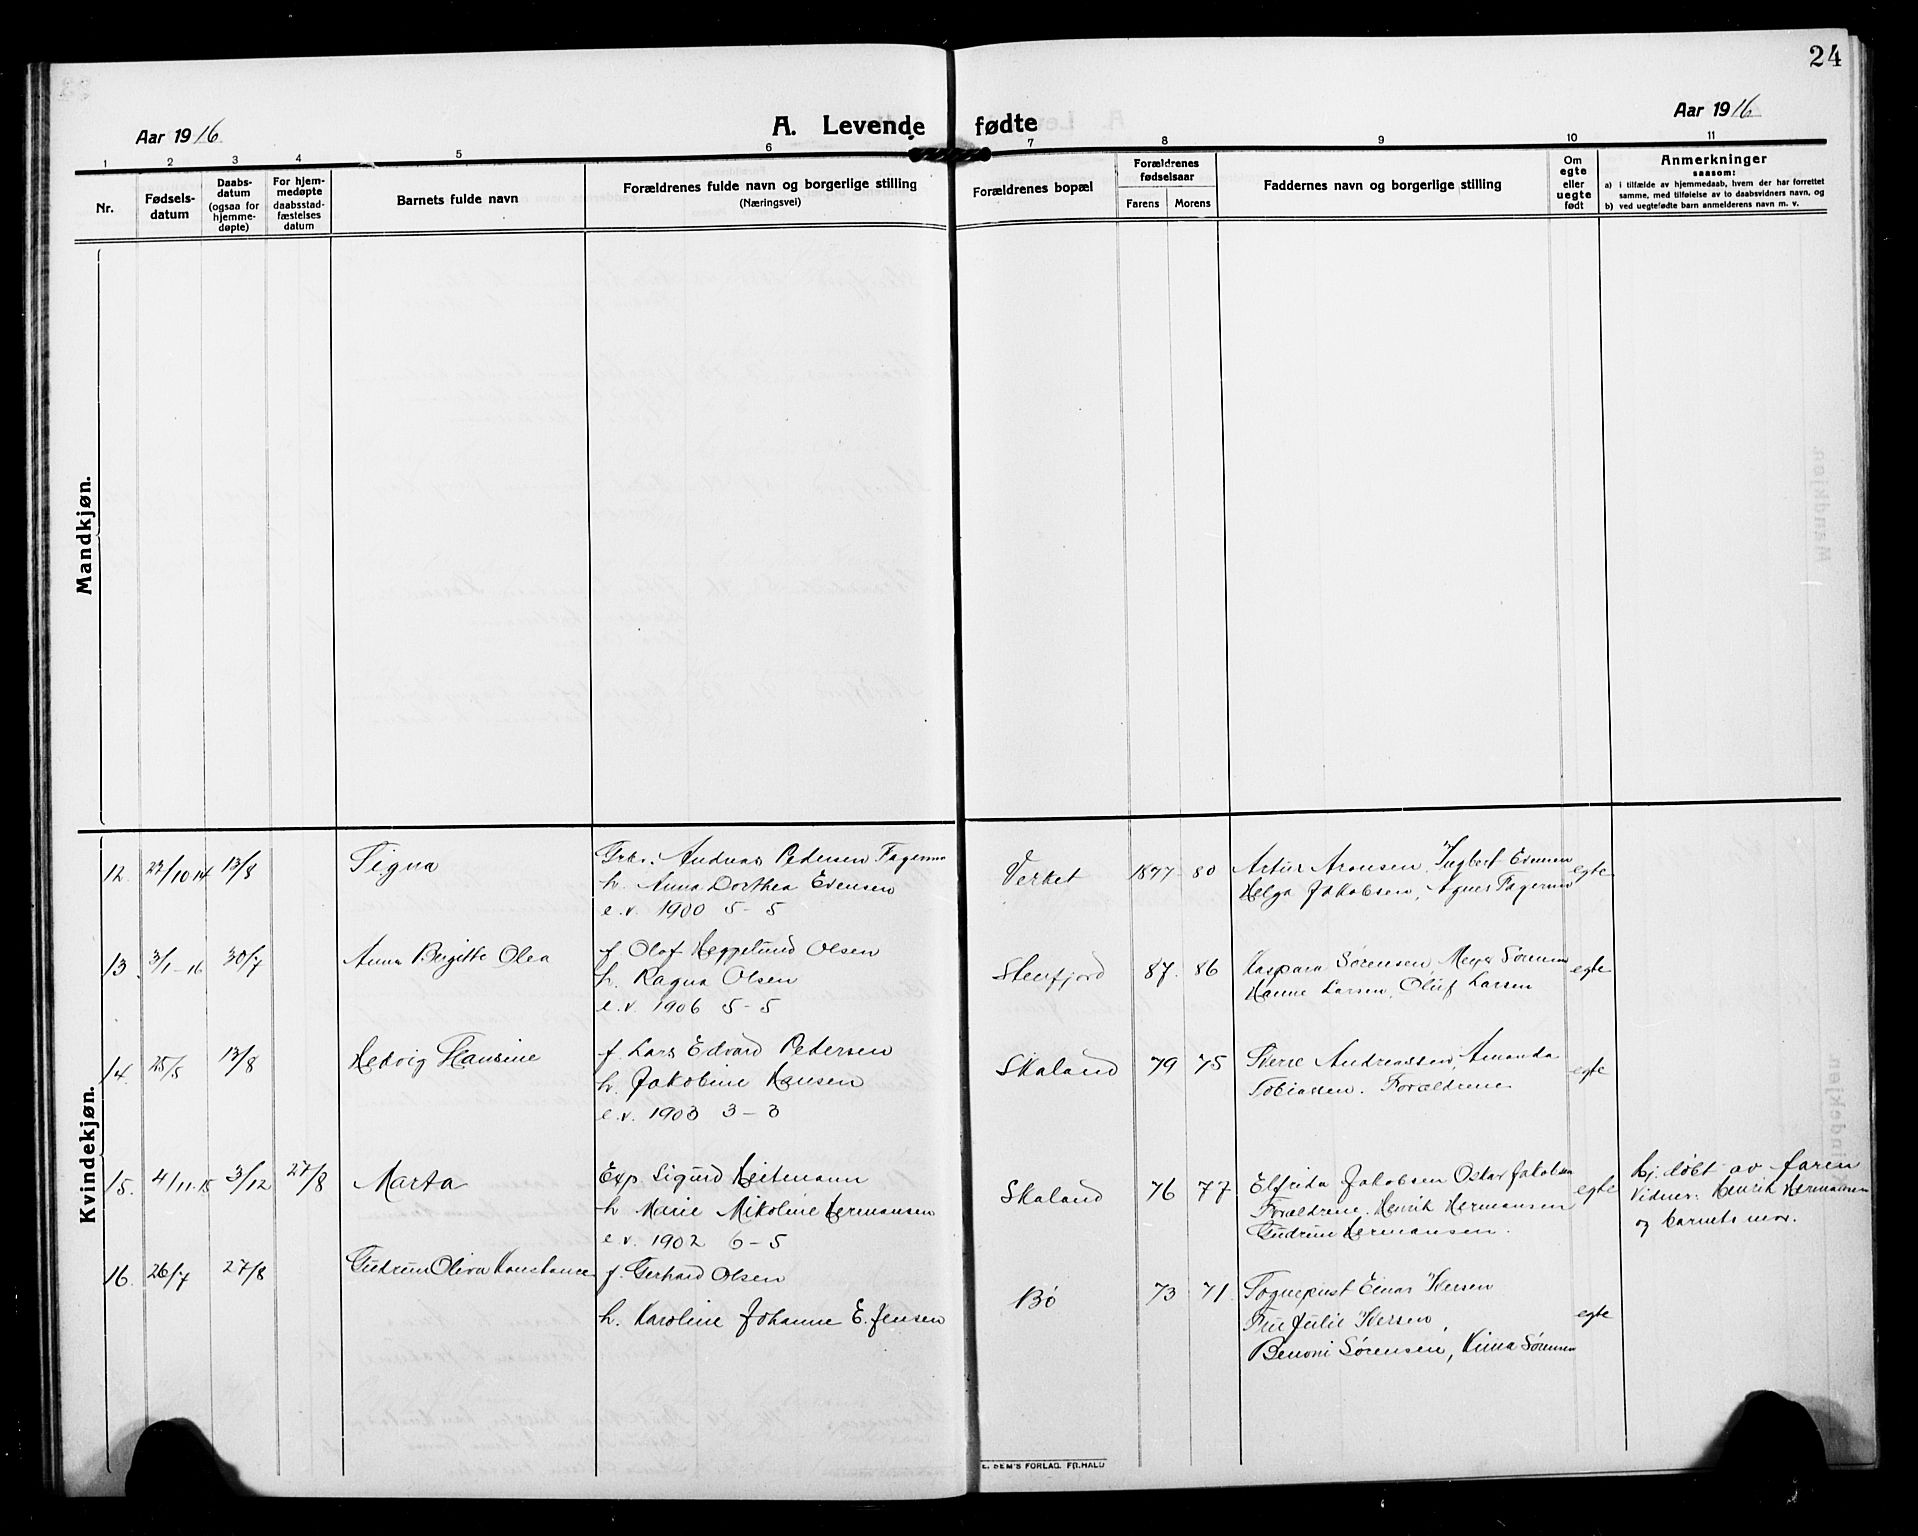 24
Aar 1916
A. Levende fødte
Aar 1916
1 2 3 4 5 6 7 8 9 10 11
Nr.
Fødsels-
datum
Daabs-
datum
(ogsaa for
hjemme-
døpte)
For hjem-
medøpte
daabsstad-
fæstelses
datum
Barnets fulde navn
Forældrenes fulde navn og borgerlige stilling
(Næringsvei)
Forældrenes bopæl
Forældrenes
fødselsaar
Farens Morens
Faddernes navn og borgerlige stilling
Om
egte
eller
uegte
født
Anmerkninger
saasom:
a) i tilfælde av hjemmedaab, hvem der har forrettet
samme, med tilføielse av to daabsvidners navn, og
b) ved uegtefødte barn anmelderens navn m. v.
Mandkjøn.
Kvindekjøn.
12. 22/10 14 13/8 Signa Grbr. Andreas Pedersen Fagermo Verket 1877 80 Artur Aronsen, Ingbert Evensen egte
h. Anna Dorthea Evensen Helga Jakobsen, Agnes Fagermo
e.v. 1900 5-5
13. 3/1-16 30/7 Anna Birgitte Olea f. Olof Heggelund Olsen Stenfjord 87. 86 Kaspara Sørensen, Meyer Sørensen egte
h. Ragna Olsen Hanne Larsen, Oluf Larsen
e.v. 1906 5-5
14. 25/5 13/8 Hedvig Hansine f. Lars Edvard Pedersen Skaland 79 75 Andreassen, Amanda egte
h. Jakobine Hansen Tobiassen. Forældrene
e.v. 1903 3-3
15. 4/11-15 3/12 27/8 Marta Exp. Sigurd Heitmann Skaland 76 77 Elfrida Jakobsen Oskar Jakobsen egte Hj. døbt av faren
h. Marie Nikoline Hermansen Forældrene. Henrik Hermansen Vidner: Henrik Hermansen
e.v. 1902 6-5 Gudrun Hermansen. og barnets mor.
16. 26/7 27/8 Gudrun Oliva Konstance f. Gerhard Olsen Bø 73 71. Sogneprest Einar Iversen egte
h. Karoline Johanne E. Jensen Fru Julie Iversen,
Benoni Sørensen, Kima Sørensen
E. SEM'S FORLAG. FR.HALD